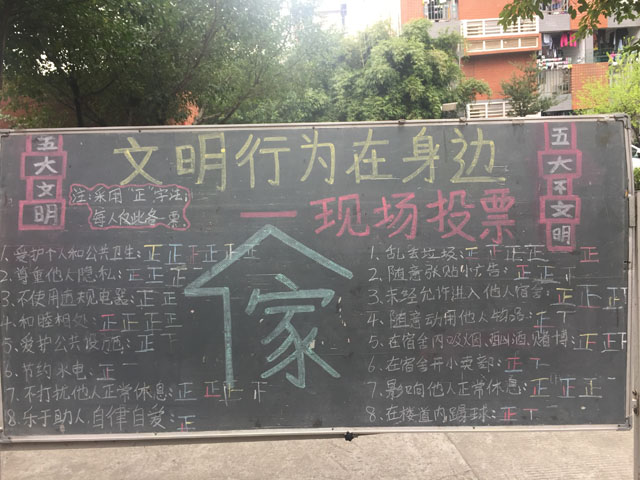 文明行为在身边
—现场投票
五大文明
注:采用"正"字法,
每人仅此各一票
1.爱护个人和公共卫生:正正正正
2.尊重他人隐私:正正正
3.不使用违规电器:正正
4.和睦相处:正正正正
5.爱护公共设施:正正
6.节约水电:正
7.不打扰他人正常休息:正正正正
8.乐于助人.自律自爱:正
家
五大不文明
1.乱丢垃圾:正正正正正
2.随意张贴小广告:正正
3.未经允许进入他人宿舍:正正正
4.随意动用他人物品:正
5.在宿舍内吸烟、酗酒、赌博
6.在宿舍开小卖部:正
7.影响他人正常休息:正正正
8.在楼道内踢球:正